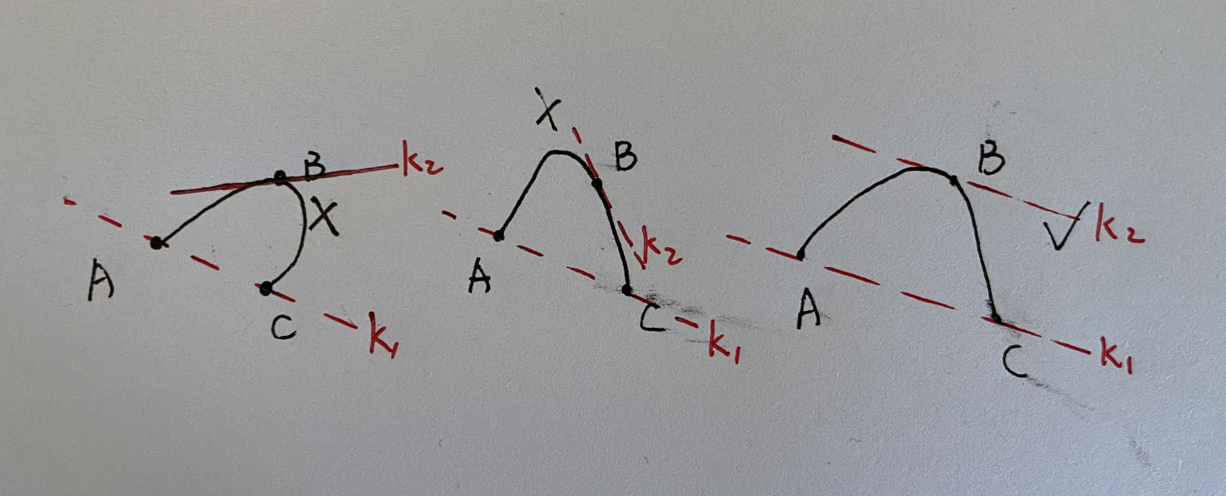 B k₂
X
A
C k₁
X
B
k₂
A
C k₁
B
√ k₂
A
C k₁